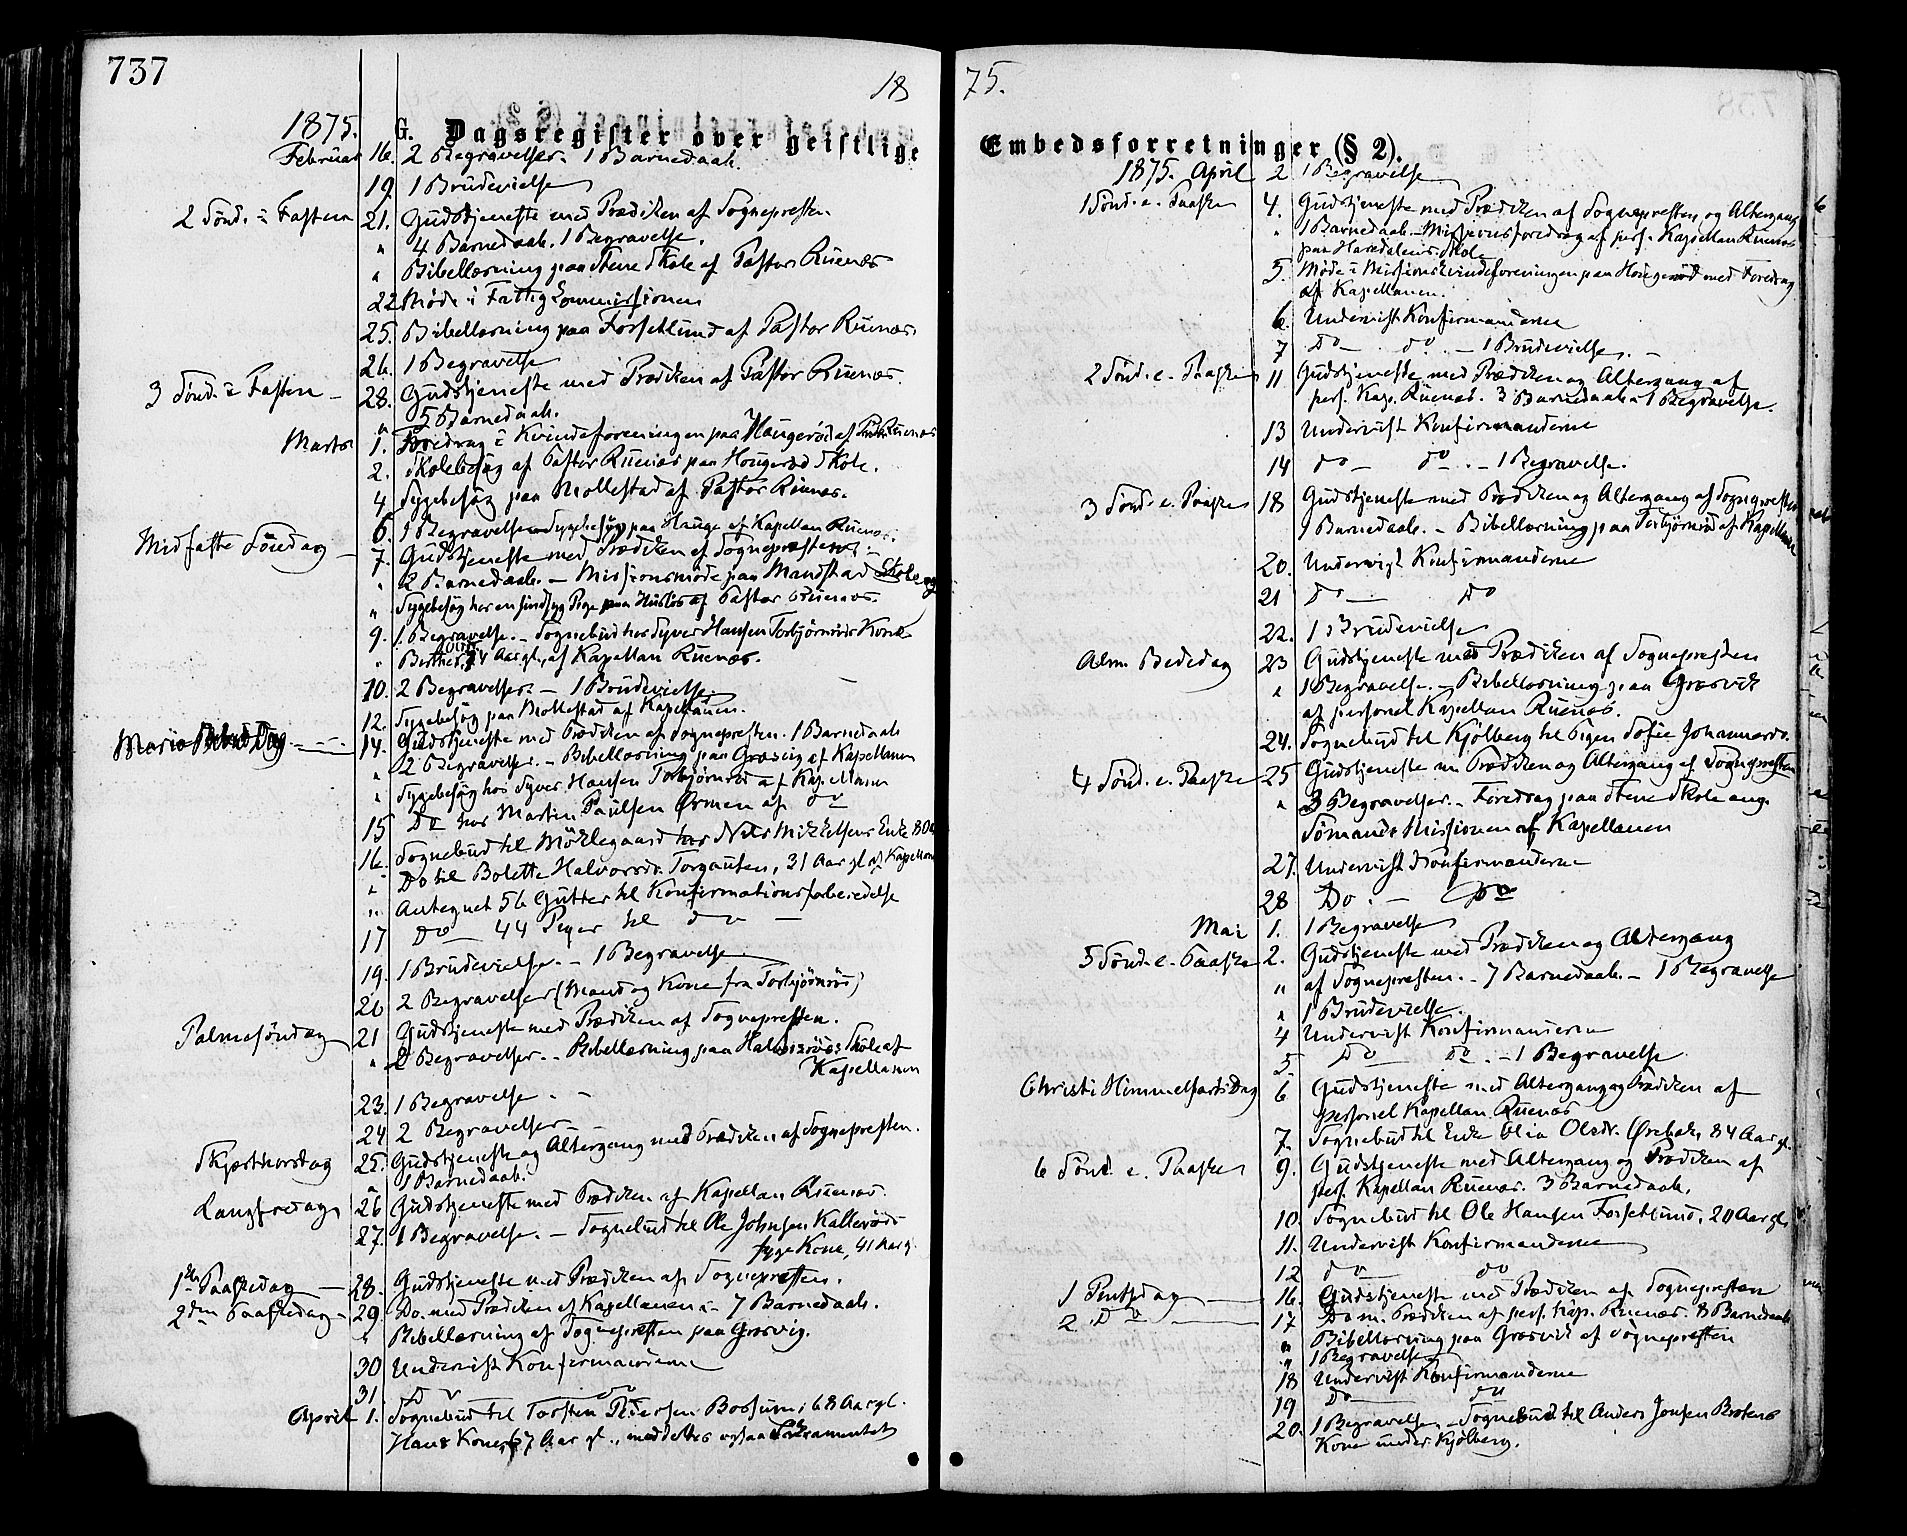 737
18
1875.
G. Dagsregister over geistlige
Februar 16. 2 Begravelser. 1 Barnedaab.
19. 1 Brudevielse
2 Sönd. i Fasten 21. Gudstjeneste med Prædiken af Sognepresten.
" 4 Barnedaab. 1 Begravelse.
" Bibellæsning paa Stene Skole af Pastor Ruenæs
22. Møde i Fattigkommissionen
25. Bibellæsning paa Forsetlund af Pastor Ruenæs.
26. 1 Begravelse
3 Sönd. i Fasten – 28. Gudstjeneste med Prædiken af Pastor Ruenæs.
" 5 Barnedaab.
Marts 1. Foredrag i Kvindeforeningen paa Haugeröd af Past. Ruenæs
2. Skolebesög af Pastor Ruenæs paa Hougeröd Skole.
4 Sygebesög paa Mollestad af Pastor Ruenæs.
6. 1 Begravelse – Sygebesög paa Hauge af Kapellan Ruenæs.
Midfaste Söndag – 7. Gudstjeneste med Prædiken af Sognepresten. –
" 2 Barnedaab. – Missionsmöde paa Mandstad Skole og
" Sygebesög hos en sindsyg Pige paa af Pastor Ruenæs.
9. 1 Begravelse. – Sognebud hos Syver Hansen Torbjörnröds Kone
" 74 Aar gl., af Kapellan Ruenæs.
10. 2 Begravelser. – 1 Brudevielse. –
12. Sygebesög paa Mollestad af Kapellanen.
Mariæ Bebud. Dag 14. Gudstjeneste med Prædiken af Sognepresten. 1 Barnedaab
" 2 Begravelser. – Bibellæsning paa Græsvig af Kapellanen
" Sygebesög hos Syver Hansen Torbjörnröd af Kapellanen
15 Do hos Martin Paulsen Ørmen af do
16. Sognebud til Möklegaard hos Nils Mikkelsens Enke 80
" Do til Bolette Halvorsd. Torgauten, 31 Aar gl. af Kapellan
" Antegnet 56 Gutter til Konfirmationsforberedelse
17 Do – 44 Piger til do –
19. 1 Brudevielse. – 1 Begravelse
20 2 Begravelser (Mand og Kone fra Torbjörnröd)
Palmesöndag 21 Gudstjeneste med Prædiken af Sognepresten.
" 2 Begravelser. – Bibellæsning paa Skole af
Kapellanen
23. 1 Begravelse. –
24 2 Begravelser –
Skjærthorsdag 25. Gudstjeneste og Altergang med Prædiken af Sognepresten.
" 1 Barnedaab.
Langfredag 26 Gudstjeneste med Prædiken af Kapellan Ruenæs.
27. 1 Begravelse. – Sognebud til Ole Johnsen Kalleröds
syge Kone, 41 Aar g.
1ste Paaskedag – 28. Gudstjeneste med Prædiken af Sognepresten.
2den Paaskedag – 29. Do. med Prædiken af Kapellanen – 7 Barnedaab.
" Bibellæsning af Sognepresten paa Græsvig.
30 Undervist Konfirmanderne
31 Do do
April 1. Sognebud til Torsten Pedersen Bossum, 68 Aar gl.
Hans Kone, 67 Aar gl., meddeltes ogsaa Sakramentet
75.
Embedsforretninger (§ 2).
1875. April 2 1 Begravelse
1 Sönd. e. Paaske 4. Gudstjeneste med Prædiken af Sognepresten og Altergang
" 1 Barnedaab. – Missionsforedrag af pers. Kapellan Ruenæs
paa Skole
5. Möde i Missionskvindeforeningen paa Hougeröd med Foredrag
af Kapellanen.
6. Undervist Konfirmanderne
7 Do – do – 1 Brudevielse. –
2 Sönd. e. Paaske 11 Gudstjeneste med Prædiken og Altergang af
pers. Kap. Ruenæs. 3 Barnedaab – 1 Begravelse.
13 Undervist Konfirmanderne
14 do – do. – 1 Begravelse.
3 Sönd. e. Paaske 18 Gudstjeneste med Prædiken og Altergang af Sognepresten
1 Barnedaab. – Bibellæsning paa Torbjörnröd af Kapellanen
20. Undervist Konfirmanderne
21 Do – Do
22. 1 Brudevielse
Alm. Bededag 23 Gudstjeneste med Prædiken af Sognepresten
" 1 Begravelse. – Bibellæsning paa Græsvik
af personel Kapellan Ruenæs.
24. Sognebud til Kjölberg til Pigen Sofie Johannesd.
4 Sönd. e. Paaske 25 Gudstjeneste m Prædiken og Altergang af Sognepresten
" 3 Begravelser. – Foredrag paa Stene Skole ang.
Sömands Missionen af Kapellanen
27. Undervist Konfirmanderne
28 Do. – Do
Mai 1. 1 Begravelse
5 Sönd. e. Paaske 2. Gudstjeneste med Prædiken og Altergang
" af Sognepresten. – 7 Barnedaab. – 1 Begravelse
" 1 Brudevielse.
4 Undervist Konfirmanderne
5 Do – do. – 1 Begravelse
Christi Himmelfarts Dag 6 Gudstjeneste med Altergang og Prædiken af
personel Kapellan Ruenæs
7. Sognebud til Enke Olia Olsdr. Ørebæk, 84 Aar gl.
6 Sönd. e. Paaske 9. Gudstjeneste med Altergang og Prædiken af
pers. Kapellan Ruenæs. 3 Barnedaab.
10. Sognebud til Ole Hansen Forsetlund, 20 Aar gl.
11. Undervist Konfirmanderne
12 do do
1 Pintsdag 16. Gudstjeneste med Prædiken af Sognepresten
2. Do 17 Do m. Prædiken af pers. Kap. Ruenæs. 8 Barnedaab
" Bibellæsning paa Græsvik af Sognepresten
" 1 Begravelse
18 Undervist Konfirmanderne
19 Do do
20. 1 Begravelse. – Sognebud til Anders Jensen Brotens
Kone under Kjölberg.